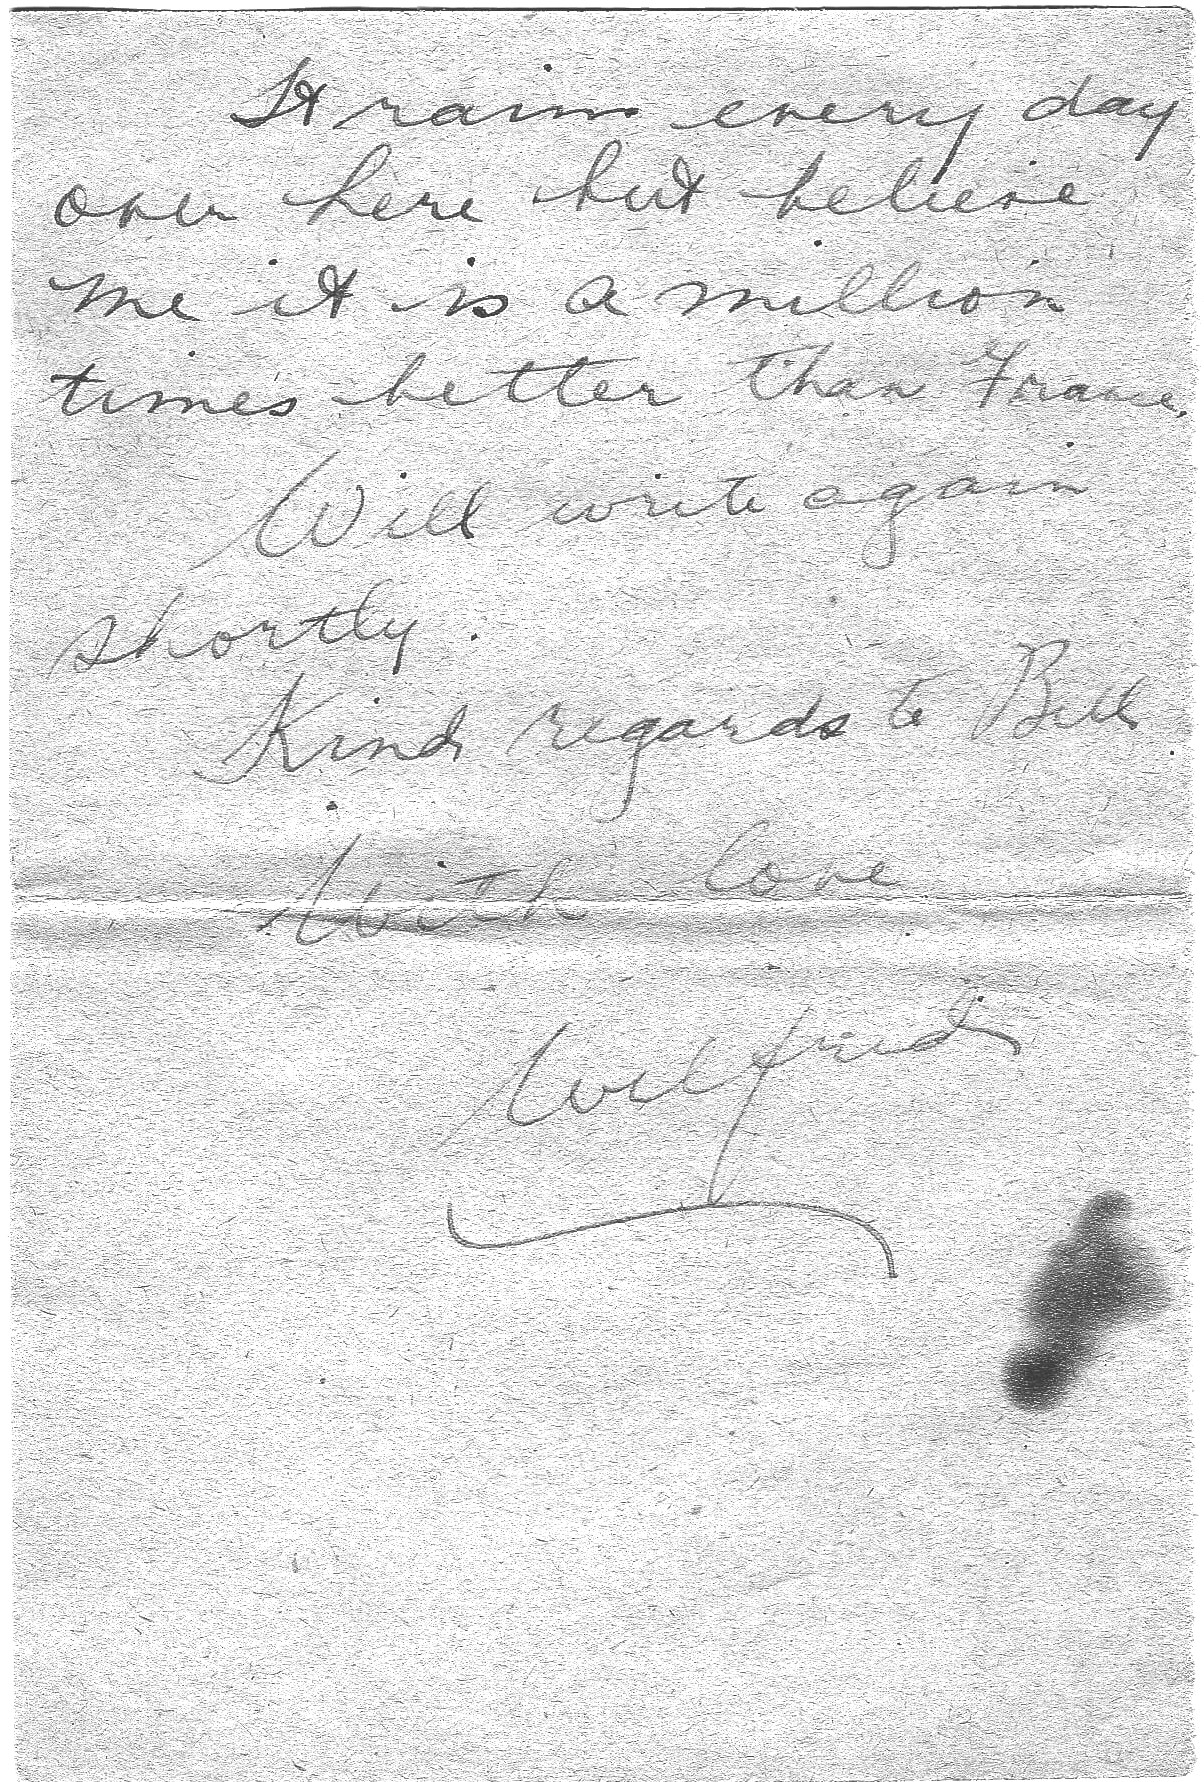 It rains every day
over here but believe
me it is a million
times better than France.
Will write again
shortly.
Kind regards to Bill.
With Love
Wilfrid